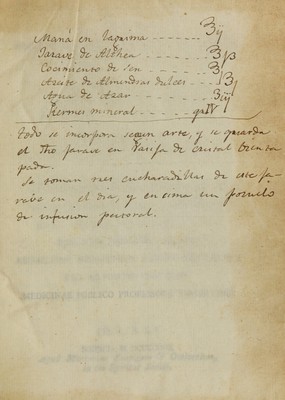 Maná en Lagrima ------ ʒij
Jarave de Althea ------ ʒiʒ
Cocimiento de Sen ------ ʒ
Azeite de Almendras dulces ---- ʒj
Agua de Azar ------ ʒiij
Kermes mineral ------ gʳIV
todo se incorpora segun arte, y se guarda
el tho jarave en Vasija de cristal bien ta
pada.
Se toman tres cucharadillas de este ja
rave en el dia, y en cima un pozuelo
de infusion pectoral.